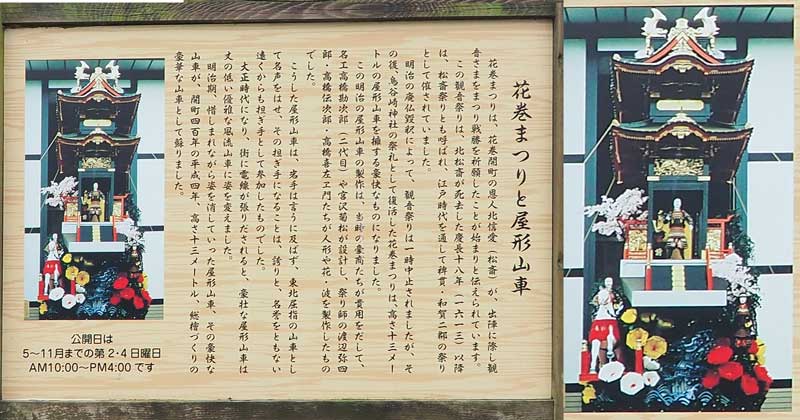 花巻まつりと屋形山車
花巻まつりは、花巻開町の恩人北信愛（松斎）が、出陣に際し観
音さまをまつり戦勝を祈願したことが始まりと伝えられています。
この観音祭りは、北松斎が死去した慶長十八年（一六一三）以降
は、松斎祭りとも呼ばれ、江戸時代を通して稗貫・和賀二郡の祭り
として催されていました。
明治の廃仏毀釈によって、観音祭りは一時中止されましたが、そ
の後、鳥谷崎神社の祭礼として復活した花巻まつりは、高さ十三メー
トルの屋形山車を擁する豪快なものになりました。
この明治の屋形山車の製作は、当時の豪商たちが費用をだして、
名工高橋勘次郎（二代目）や宮沢菊松が設計し、祭り師の渡辺弥四
郎・高橋伝次郎・高橋喜左エ門たちが人形や花・波を製作したもの
でした。
こうした屋形山車は、岩手は言うに及ばず、東北屈指の山車とし
て名声をはせ、その担ぎ手になることは、誇りと、名誉をともない
遠くからも担ぎ手として参加したものでした。
大正時代になり、街に電線が張りだされると、豪壮な屋形山車は
丈の低い優雅な風流山車に姿を変えました。
明治期、惜しまれながら姿を消していった屋形山車、その豪快な
山車が、開町四百年の平成四年、高さ十三メートル、総檜づくりの
豪華な山車として蘇りました。
公開日は
5〜11月までの第2・4日曜日
AM10:00〜PM4:00です